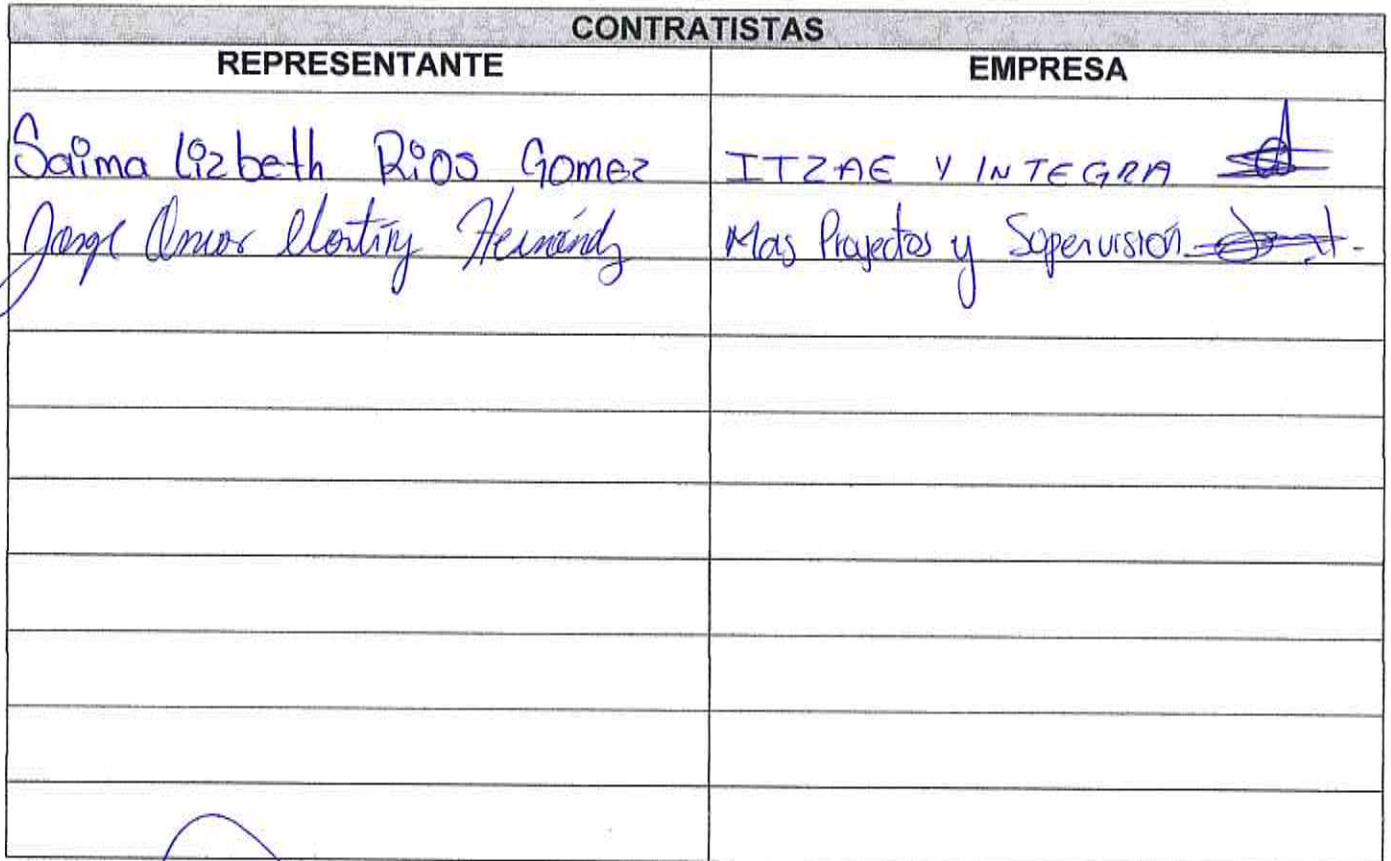 CONTRATISTAS
REPRESENTANTE EMPRESA
Saima Lizbeth Rios Gomez ITZAE Y INTEGRA
Jorge Omar Hernández Mas Proyectos y Supervisión